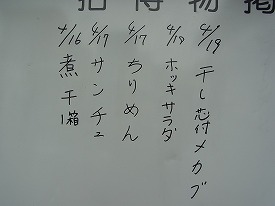 拾得物掲
4/19 干し芯付メカブ
4/19 ホッキサラダ
4/17 ちりめん
4/17 サンチュ
4/16 煮干1箱